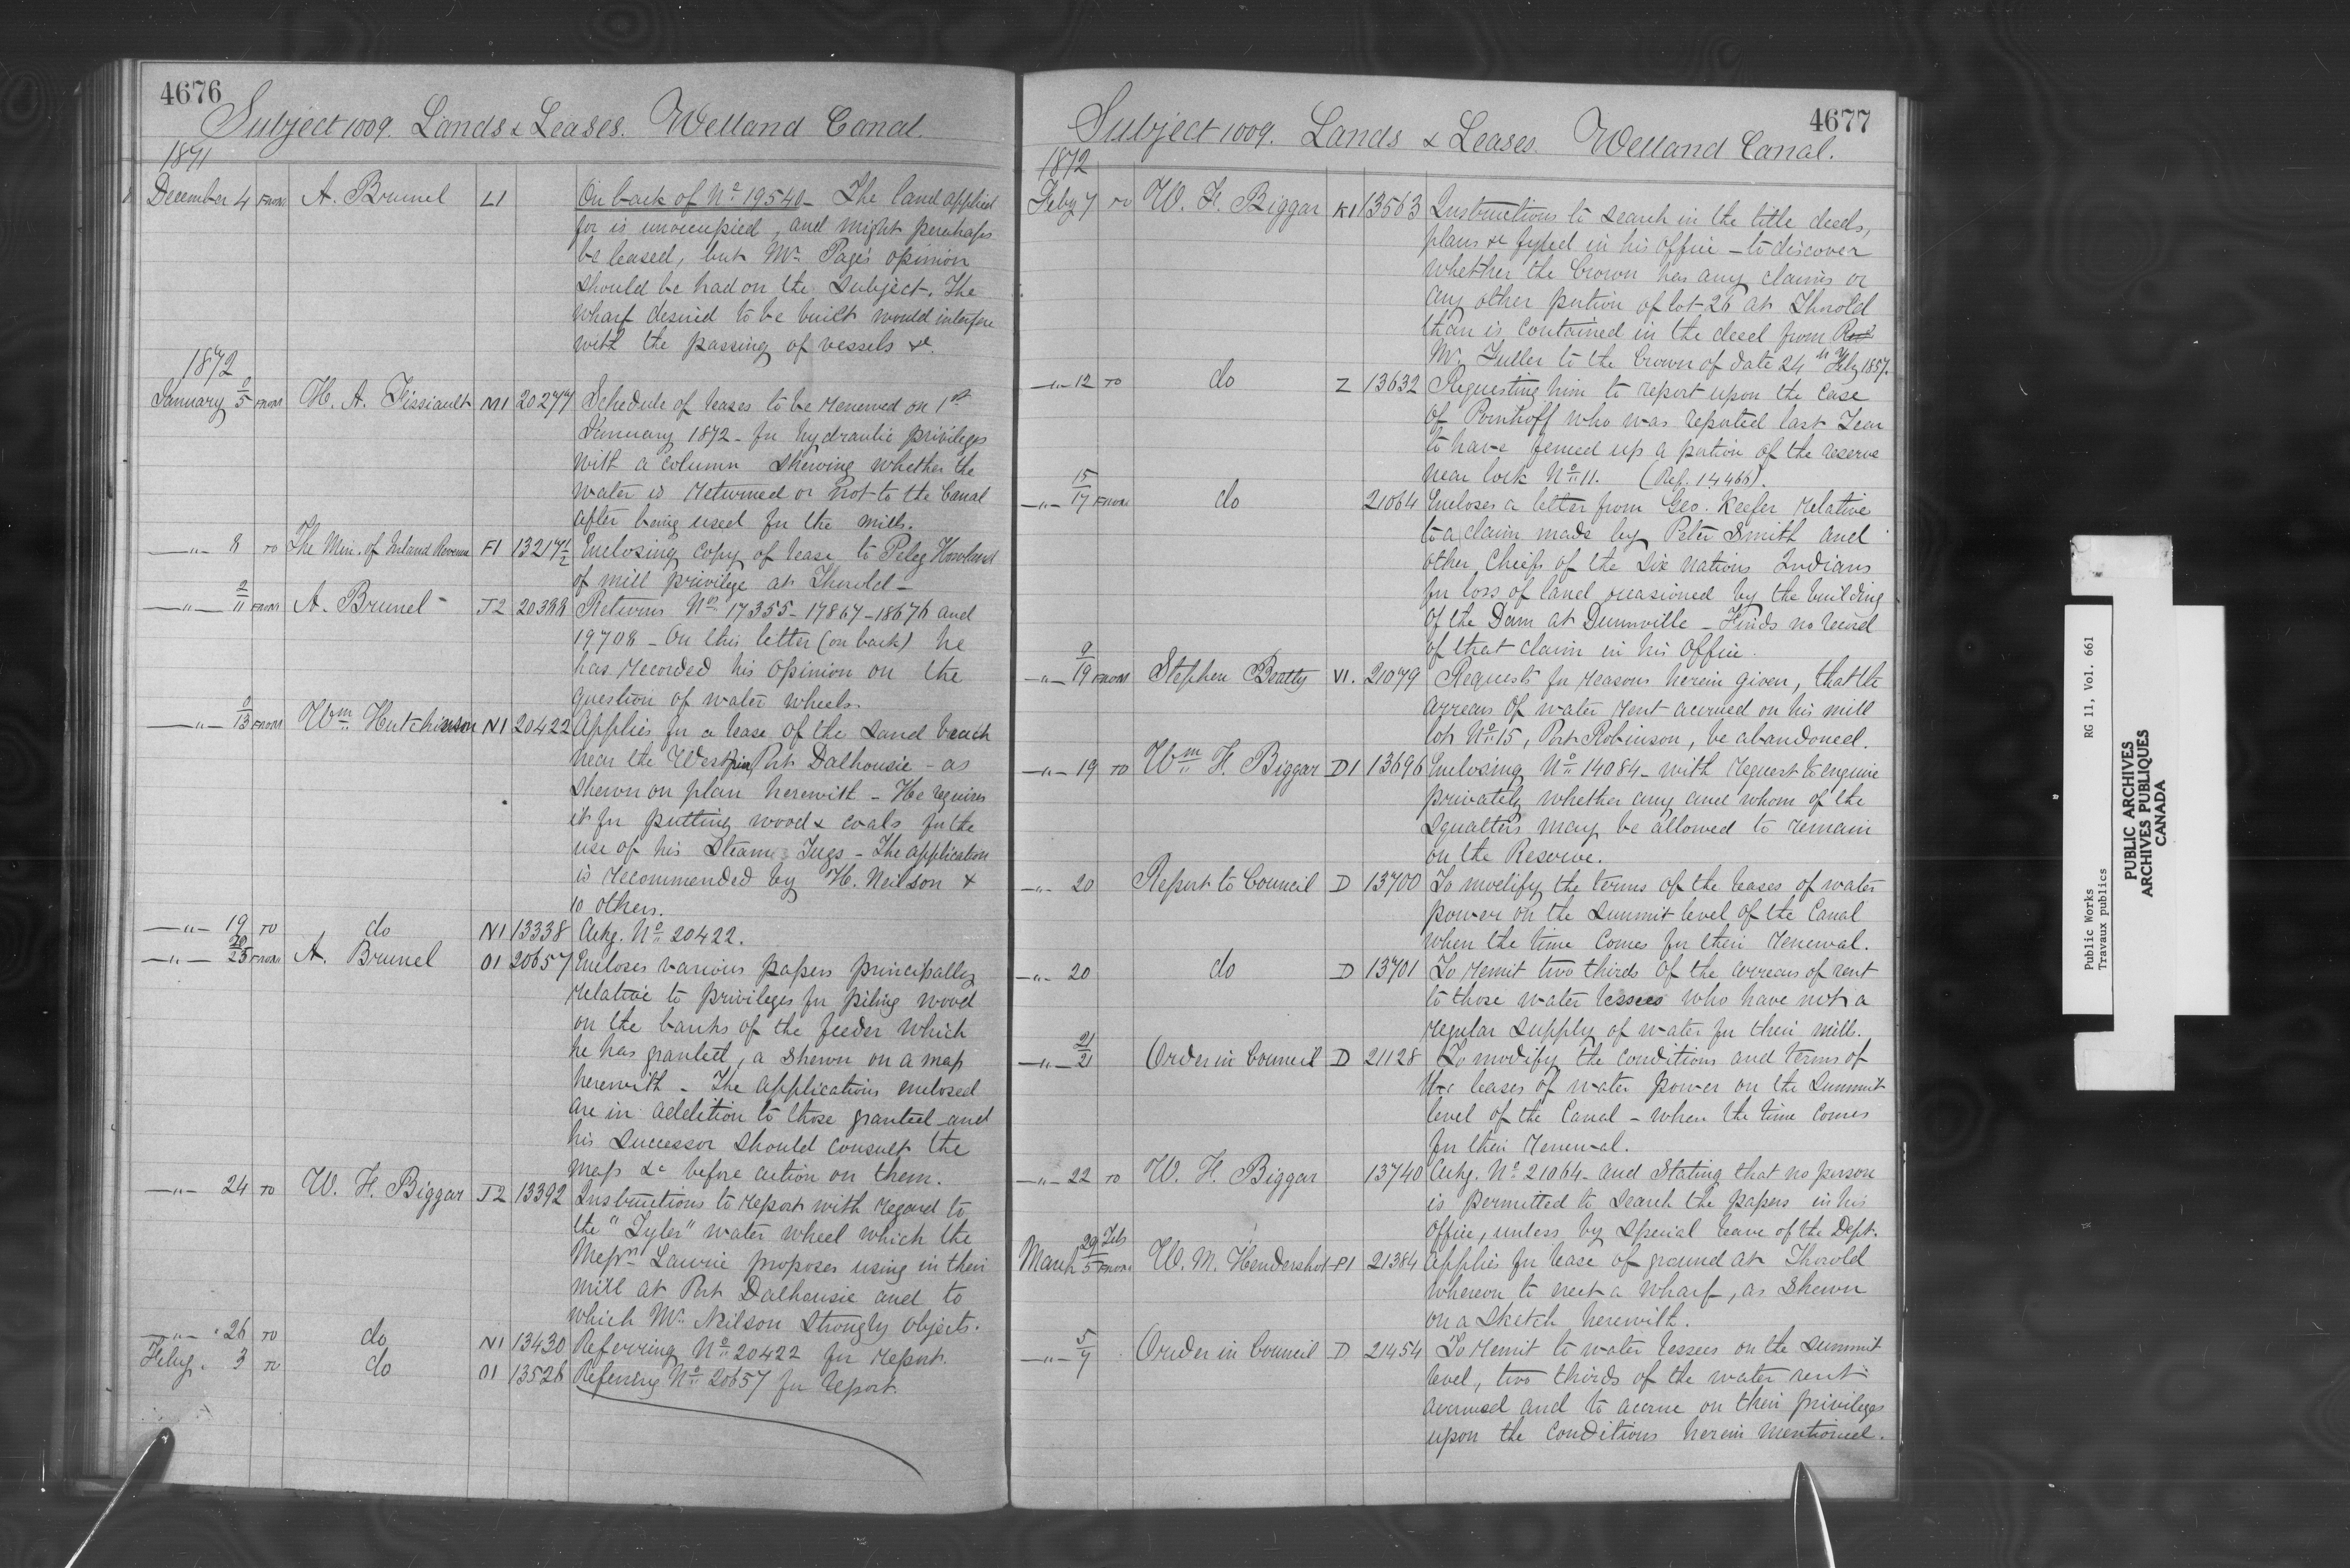 4676
Subject 1009. Lands & Leases. Welland Canal.
1871
December 4 From A. Brunel L1 On back of No 19540 - The land applied
for is unoccupied, and might perhaps
be leased, but Mr. Page's opinion
should be had on the subject. The
wharf desired to be built would interfere
with the passing of vessels &c.
1872
January 2/5 From H. A. Fissiault M1 20277 Schedule of leases to be renewed on 1st
January 1872 - for hydraulic privileges
with a column shewing whether the
water is returned or not to the Canal
after being used for the mills.
—"— 8 To The Min. of Inland Revenue F1 13217 1/2 Enclosing copy of lease to Peleg Howland
of mill privilege at Thorold -
—"— 9/11 From A. Brunel J2 20388 Returns Nos 17355 - 17867 - 18676 and
19708 - On this letter (on back) he
has recorded his opinion on the
question of water wheels.
—"— 9/13 From Wm. Hutchinson N1 20422 Applies for a lease of the sand beach
near the West pier Port Dalhousie - as
shewn on plan herewith - He requires
it for putting wood & coals for the
use of his Steam Tugs - The application
is recommended by H. Neilson &
10 others.
—"— 19 To do N1 13338 Ackg. No 20422.
—"— 20/23 From A. Brunel O1 20657 Encloses various papers principally
relative to privileges for piling wood
on the banks of the feeder which
he has granted, a shewn on a map
herewith - The applications enclosed
are in addition to those granted and
his successor should consult the
map &c before action on them.
—"— 24 To W. H. Biggar J2 13392 Instructions to report with regard to
the "Tyler" water wheel which the
Messrs Lawrie proposes using in their
mill at Port Dalhousie and to
which Mr. Neilson strongly objects.
—"— 26 To do N1 13430 Referring No 20422 for report.
Feby. 3 To do O1 13528 Referring No 20657 for report.
4677
Subject 1009. Lands & Leases. Welland Canal.
1872
Feby 7 To W. H. Biggar K1 13563 Instructions to search in the title deeds,
plans &c in his office - to discover
whether the Crown has any claims or
any other portion of lot 26 at Thorold
than is contained in the deed from
Mr. Fuller to the Crown of date 24th Feby 1857.
—"— 12 To do Z 13632 Requesting him to report upon the case
of who was reported last Year
to have fenced up a portion of the reserve
near lock No 11. (Ref. 14466).
—"— 15/17 From do 21064 Encloses a letter from Geo. Keefer relative
to a claim made by Peter Smith and
other Chiefs of the Six Nations Indians
for loss of land occasioned by the building
of the Dam at Dunnville - Finds no record
of that claim in his Office.
—"— 9/19 From Stephen Beatty V1. 21079 Requests for reasons herein given, that the
arrears of water rent accrued on his mill
lot No 15, Port Robinson, be abandoned.
—"— 19 To Wm H. Biggar D1 13696 Enclosing No 14084 - with request to enquire
privately whether any and whom of the
Squatters may be allowed to remain
on the Reserve.
—"— 20 Report to Council D 13700 To modify the terms of the leases of water
power on the summit level of the Canal
when the time comes for their renewal.
—"— 20 do D 13701 To remit two thirds of the arrears of rent
to those water lessees who have not a
regular supply of water for their mills.
—"— 21/21 Order in Council D 21128 To modify the conditions and terms of
the leases of water power on the summit
level of the Canal - when the time comes
for their renewal.
—"— 22 To W. H. Biggar 13740 Ackg. No 21064 - and Stating that no person
is permitted to search the papers in his
Office, unless by special leave of the Dept.
March 29 Feb/5 From W. M. Hendershot P1 21384 Applies for lease of ground at Thorold
whereon to erect a wharf, as shewn
on a sketch herewith.
—"— 5/7 Order in Council D 21454 To remit to water lessees on the summit
level, two thirds of the water rent
accrued and to accrue on their privileges
upon the conditions herein mentioned.
Public Works RG 11, Vol. 661
Travaux publics
PUBLIC ARCHIVES
ARCHIVES PUBLIQUES
CANADA